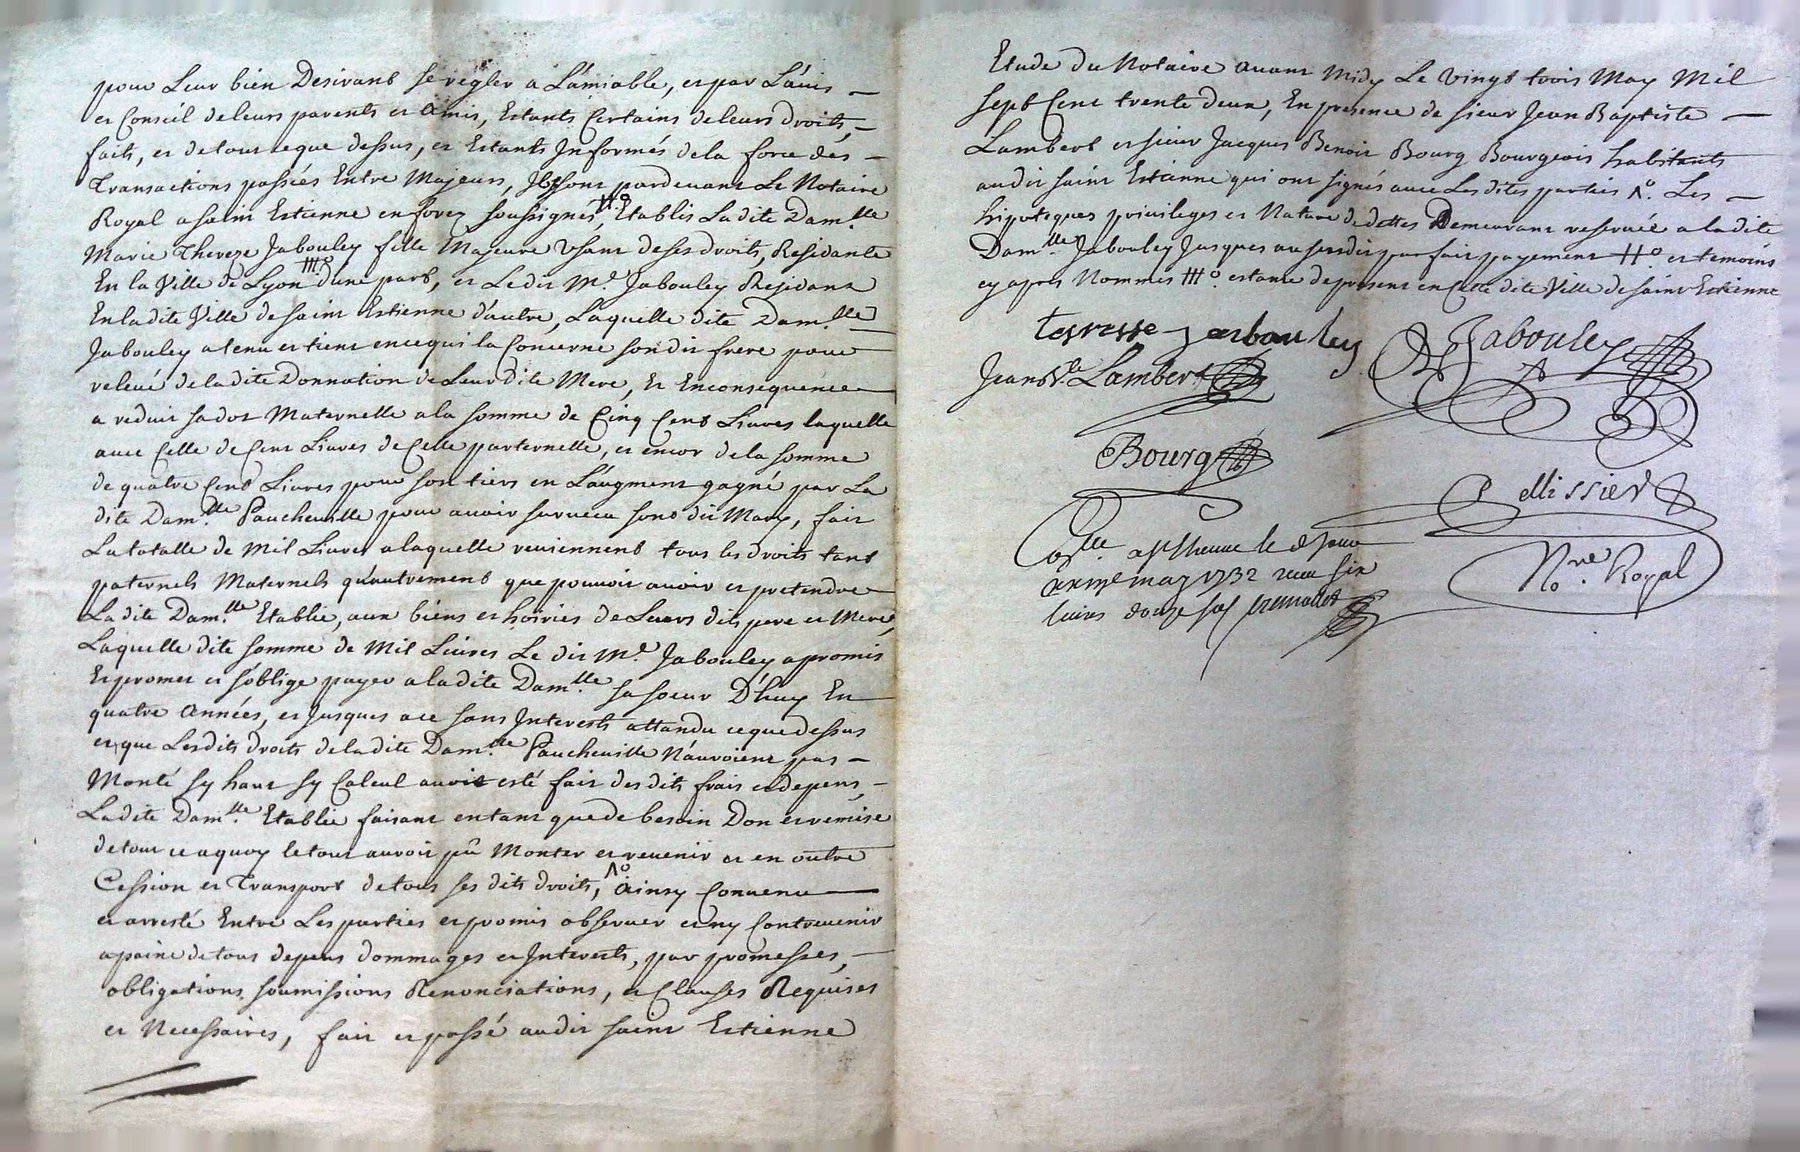 pour Leur bien Desirants se regler a L'amiable, et par L'avis
et Conseil de leurs parents et Amis, Estants Certains de leurs Droits,
faits, et de tout ce que dessus, et Estants Informés de la force des
Transactions passées Entre Majeurs, Ils sont pardevant Le Notaire
Royal a saint Estienne en forez soussignés, H° Etablis La dite Dam.lle
Marie Thereze Jabouley fille Majeure Usant de ses droits, Residante
En la Ville de Lyon III° d'une part, et Le dit M.e Jabouley Residant
En la dite Ville de saint Estienne d'autre, Laquelle dite Dam.lle
Jabouley a tenu et tient en ce qui la Concerne son dit frere pour
relevé de la dite Donnation de Leur dite Mere, Et En consequence
a reduit sa dot Maternelle a la somme de Cinq Cents Livres laquelle
avec Celle de Cent Livres de Celle paternelle, et encor de la somme
de quatre Cents Livres pour son tiers en L'augment gagné par La
dite Dam.lle Faucheville pour avoir survecu son dit Mary, fait
La totalle de Mil Livres a laquelle reviennent tous les droits tant
paternels Maternels qu'autrement que pouvoit avoir et pretendre
La dite Dam.lle Etablie, aux biens et hoiries de Leurs dits pere et Mere,
Laquelle dite somme de Mil Livres Le dit M.e Jabouley a promis
Et promet et s'oblige payer a la dite Dam.lle sa soeur D'huy En
quatre Années, et Jusques a ce sans Interests attandu ce que dessus
et que Lesdits droits de la dite Dam.lle Faucheville N'auroient pas
Monté sy haut sy Calcul avoit esté fait desdits frais et depens,
La dite Dam.lle Etablie faisant en tant que de besoin Don et remise
de tout ce a quoy le tout auroit pû Monter et revenir et en outre
Cession et Transport de tous ses dits droits, Λ° Ainsy Convenu
et arresté Entre Les parties et promis observer et ny Contrevenir
a paine de tous depens dommages et Interests, par promesses,
obligations soumissions Renonciations, et Clauses Requises
et Necessaires, fait et passé audit saint Estienne
Etude du Notaire avant Midy Le vingt trois May Mil
sept Cent trente deux, En presence de sieur Jean Baptiste
Lambert et sieur Jacques Benoit Bourg Bourgeois habitants
audit saint Estienne qui ont signés avec Les dites parties Λ°. Les
hipoteques privileges et Nature de dettes Demeurant reservée a la dite
Dam.lle Jabouley Jusques au susdit parfait payement H° et temoins
cy apres Nommés III° estante de present en Cette dite Ville de saint Estienne
teresse jabouley
Jabouley
Jean B.te Lambert
Bourg
Pellissier
N.re Royal
may 1732 receu six
livres douze sols